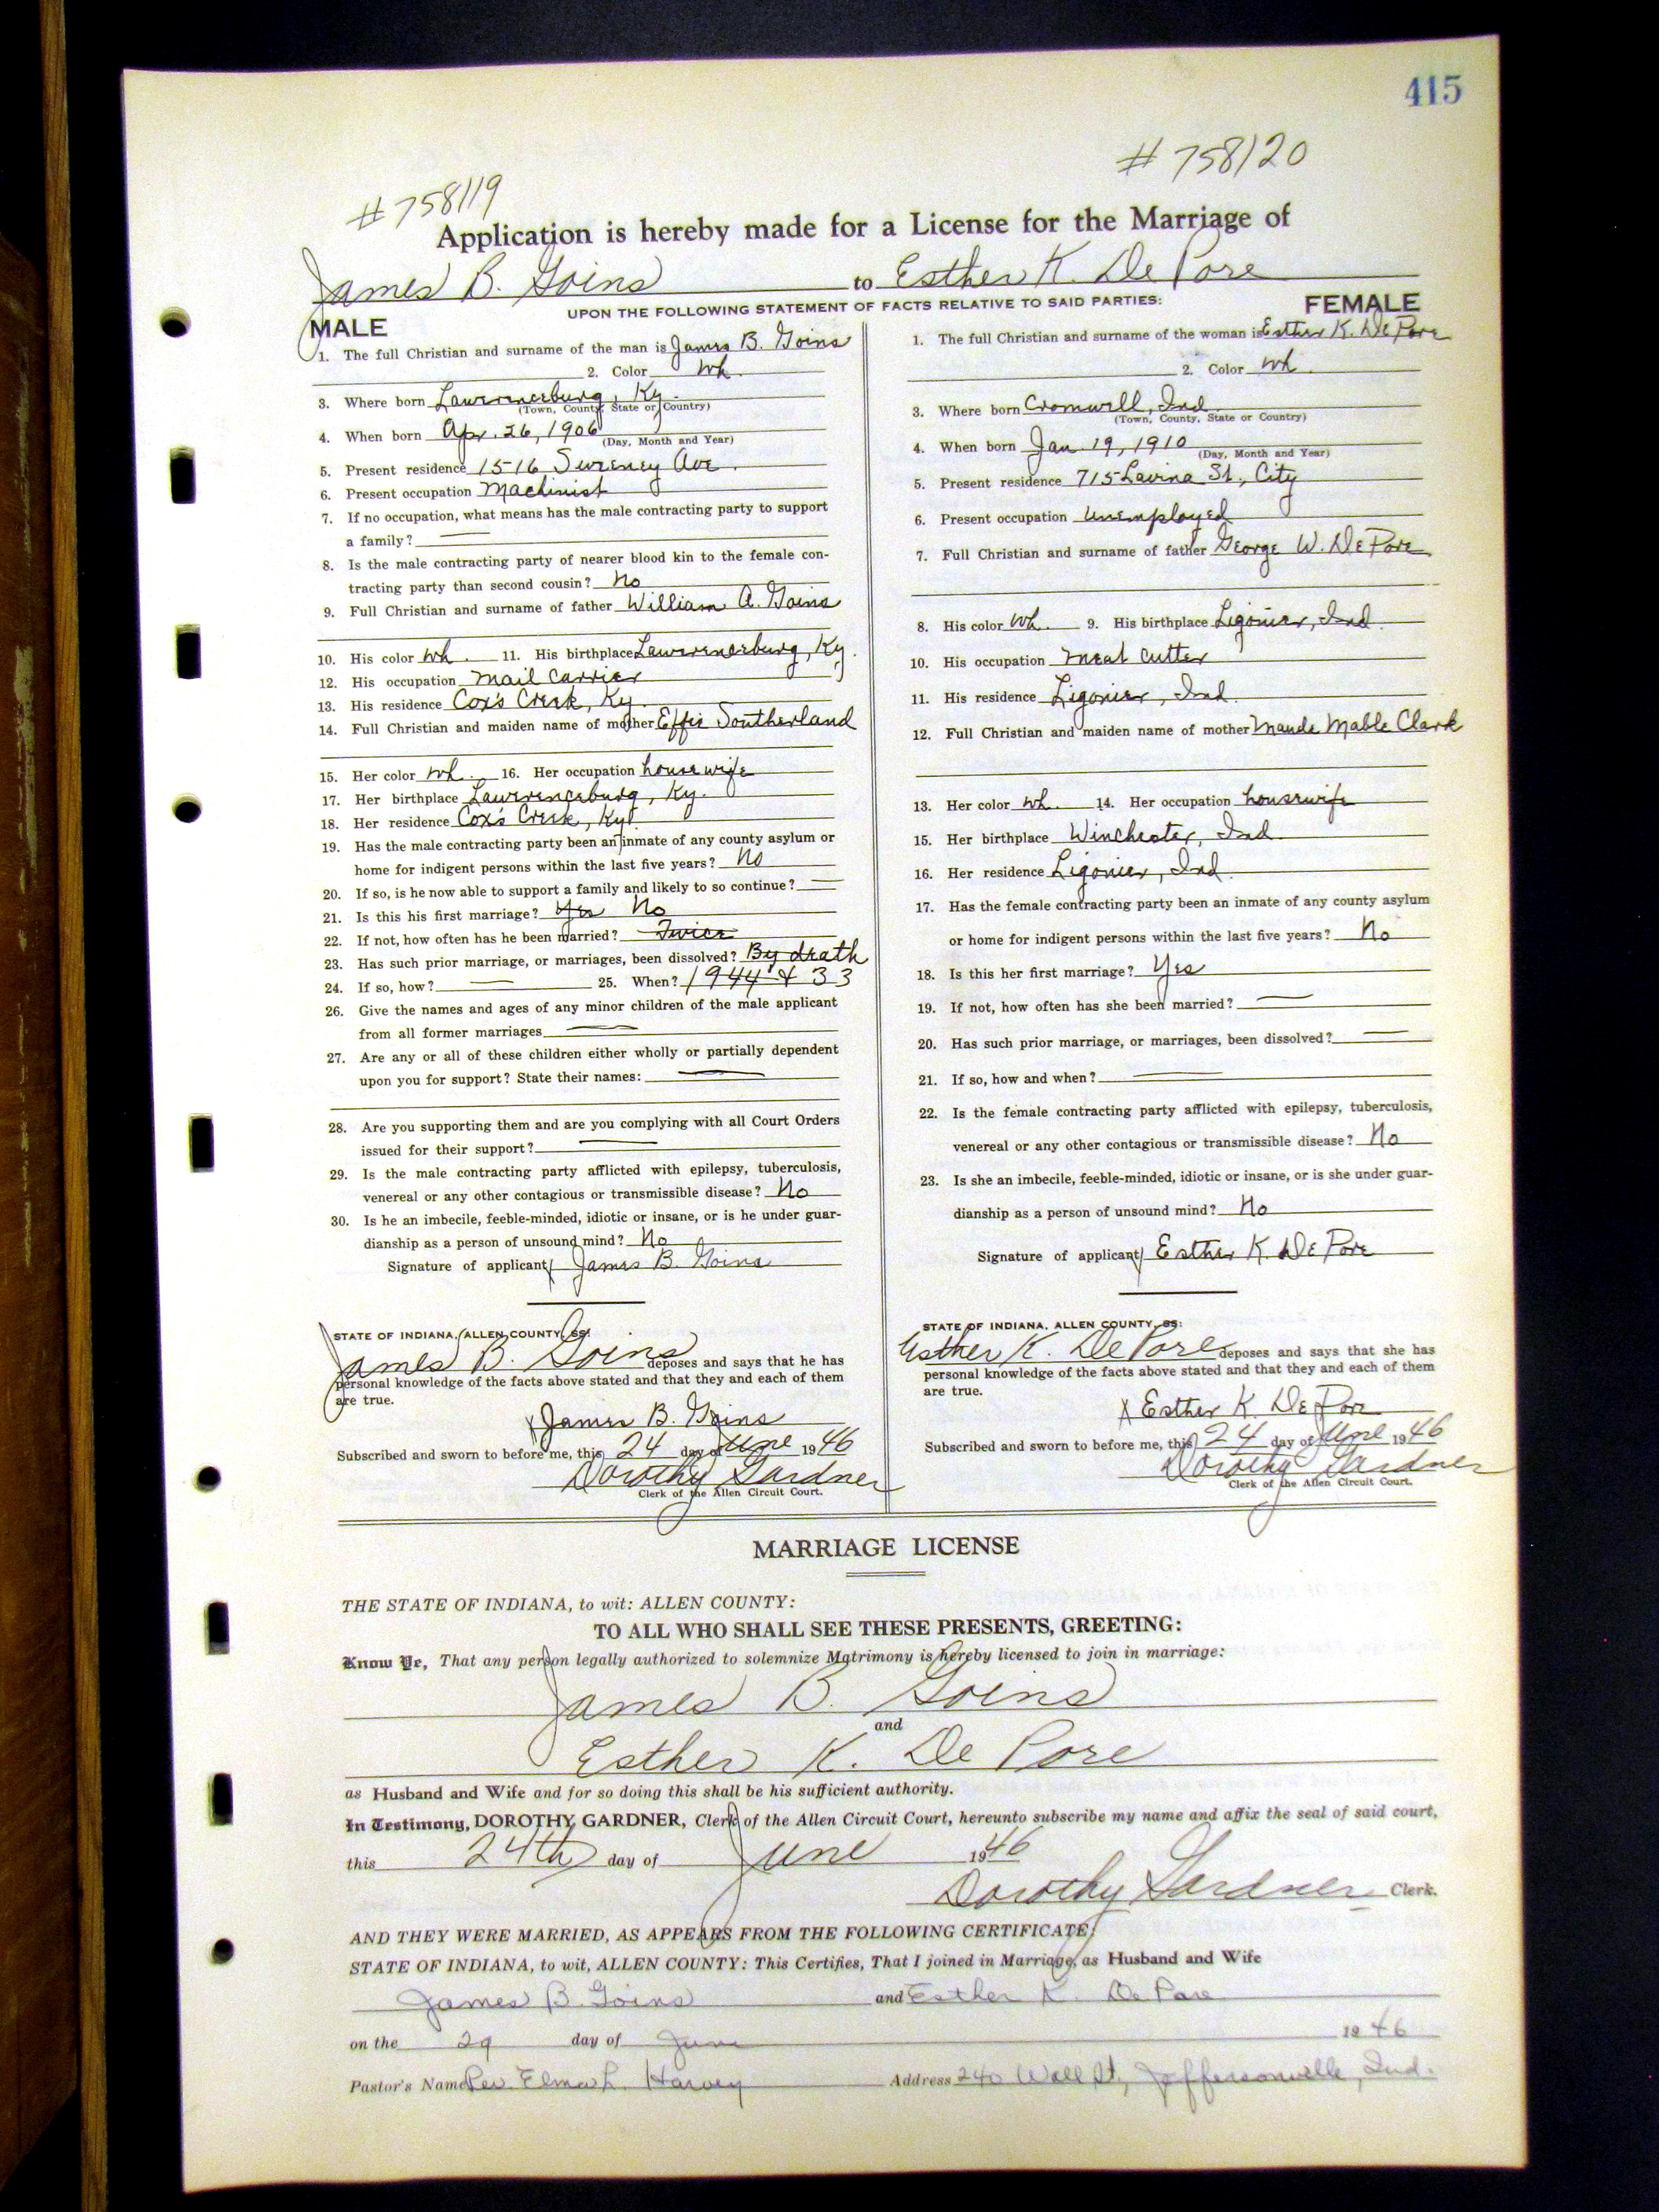 415
# 758119
# 758120
Application is hereby made for a License for the Marriage of
James B. Goins to Esther K. De Pore
UPON THE FOLLOWING STATEMENT OF FACTS RELATIVE TO SAID PARTIES:
MALE
1. The full Christian and surname of the man is James B. Goins
2. Color Wh.
3. Where born Lawrenceburg, Ky.
(Town, County, State or Country)
4. When born Apr. 26, 1906
(Day, Month and Year)
5. Present residence 1516 Sweeney Ave.
6. Present occupation Machinist
7. If no occupation, what means has the male contracting party to support
a family? —
8. Is the male contracting party of nearer blood kin to the female con-
tracting party than second cousin? No
9. Full Christian and surname of father William A. Goins
10. His color Wh. 11. His birthplace Lawrenceburg, Ky.
12. His occupation Mail Carrier
13. His residence Cox's Creek, Ky.
14. Full Christian and maiden name of mother Effie Southerland
15. Her color Wh. 16. Her occupation housewife
17. Her birthplace Lawrenceburg, Ky.
18. Her residence Cox's Creek, Ky.
19. Has the male contracting party been an inmate of any county asylum or
home for indigent persons within the last five years? No
20. If so, is he now able to support a family and likely to so continue? —
21. Is this his first marriage? Yes No
22. If not, how often has he been married? Twice
23. Has such prior marriage, or marriages, been dissolved? By death
24. If so, how? — 25. When? 1944 & 33
26. Give the names and ages of any minor children of the male applicant
from all former marriages —
27. Are any or all of these children either wholly or partially dependent
upon you for support? State their names: —
28. Are you supporting them and are you complying with all Court Orders
issued for their support? —
29. Is the male contracting party afflicted with epilepsy, tuberculosis,
venereal or any other contagious or transmissible disease? No
30. Is he an imbecile, feeble-minded, idiotic or insane, or is he under guar-
dianship as a person of unsound mind? No
Signature of applicant James B. Goins
STATE OF INDIANA, ALLEN COUNTY, SS:
James B. Goins deposes and says that he has
personal knowledge of the facts above stated and that they and each of them
are true.
x James B. Goins
Subscribed and sworn to before me, this 24 day of June 1946
Dorothy Gardner
Clerk of the Allen Circuit Court.
FEMALE
1. The full Christian and surname of the woman is Esther K. De Pore
2. Color Wh.
3. Where born Cromwell, Ind
(Town, County, State or Country)
4. When born Jan. 19, 1910
(Day, Month and Year)
5. Present residence 715 Lavina St., City
6. Present occupation Unemployed
7. Full Christian and surname of father George W. De Pore
8. His color Wh. 9. His birthplace Ligonier, Ind.
10. His occupation Meat cutter
11. His residence Ligonier, Ind.
12. Full Christian and maiden name of mother Maude Mable Clark
13. Her color Wh. 14. Her occupation housewife
15. Her birthplace Winchester, Ind.
16. Her residence Ligonier, Ind.
17. Has the female contracting party been an inmate of any county asylum
or home for indigent persons within the last five years? No
18. Is this her first marriage? Yes
19. If not, how often has she been married? —
20. Has such prior marriage, or marriages, been dissolved? —
21. If so, how and when? —
22. Is the female contracting party afflicted with epilepsy, tuberculosis,
venereal or any other contagious or transmissible disease? No
23. Is she an imbecile, feeble-minded, idiotic or insane, or is she under guar-
dianship as a person of unsound mind? No
Signature of applicant Esther K. De Pore
STATE OF INDIANA, ALLEN COUNTY, SS:
Esther K. De Pore deposes and says that she has
personal knowledge of the facts above stated and that they and each of them
are true.
x Esther K. De Pore
Subscribed and sworn to before me, this 24 day of June 1946
Dorothy Gardner
Clerk of the Allen Circuit Court.
MARRIAGE LICENSE
THE STATE OF INDIANA, to wit: ALLEN COUNTY:
TO ALL WHO SHALL SEE THESE PRESENTS, GREETING:
Know Ye, That any person legally authorized to solemnize Matrimony is hereby licensed to join in marriage:
James B. Goins
and
Esther K. De Pore
as Husband and Wife and for so doing this shall be his sufficient authority.
In Testimony, DOROTHY GARDNER, Clerk of the Allen Circuit Court, hereunto subscribe my name and affix the seal of said court,
this 24th day of June 1946
Dorothy Gardner Clerk.
AND THEY WERE MARRIED, AS APPEARS FROM THE FOLLOWING CERTIFICATE:
STATE OF INDIANA, to wit, ALLEN COUNTY: This Certifies, That I joined in Marriage, as Husband and Wife
James B. Goins and Esther K. De Pore
on the 29 day of June 1946
Pastor's Name Rev. Elmer L. Harvey Address 240 Wall St., Jeffersonville, Ind.